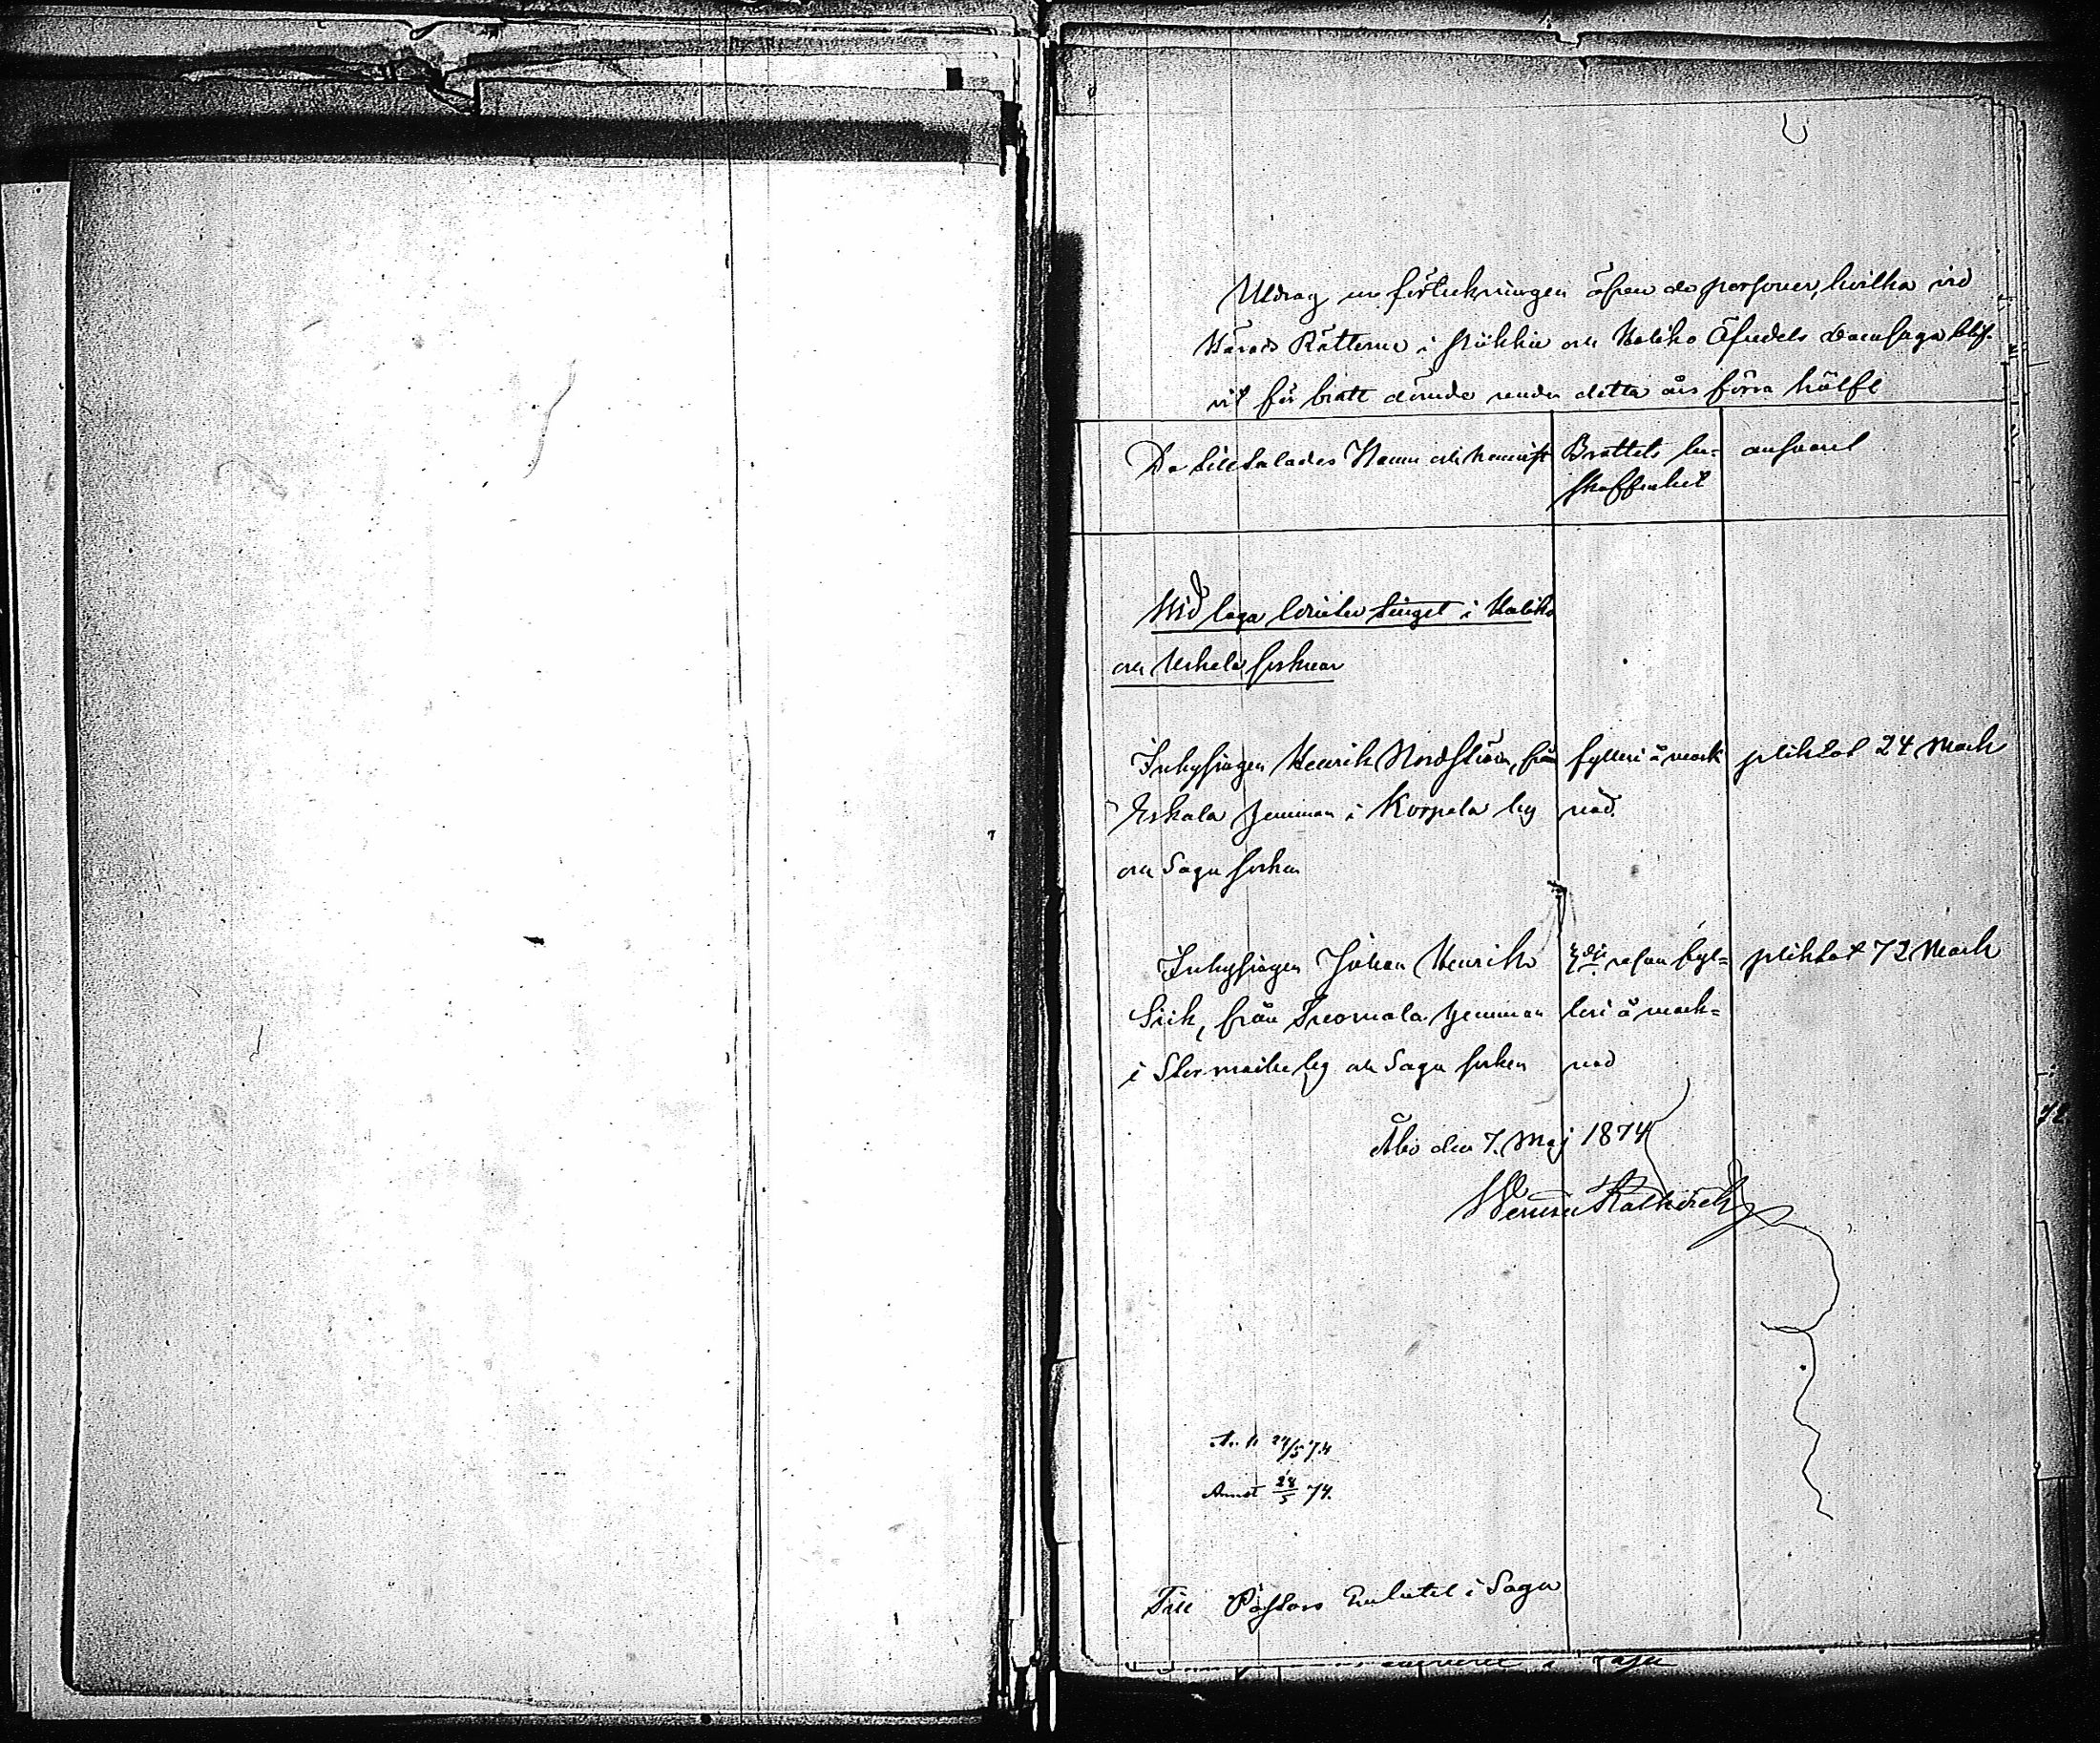 Utdrag ur förtekningen öfver de personer, hvilka vid
Härads Rätterne i Pikkie och Halikko Öfredels domsaga blif-
vit för brott dömde under detta års förra hälft
De tilltalades Namn och hemvist
Brottets be=
skaffenhet
ansvaret
Wid laga vintertinget i Halikko
och Uskela socknar
Inhysingen Henrik Nordström, från
Eskola hemman i Korpela by
och Sagu socken
fylleri å mark
nad.
pliktat 24 Mark
Inhysingen Johan Henriks
Sick, från hemman
i by och Sagu socken
dje resan fyl=
leri å mark=
nad
pliktat 72 Mark
Åbo den 7. Maj 1874
Ank 24/5 74
Annot 28/5 74.
Till Pastors Embetet i Sagu